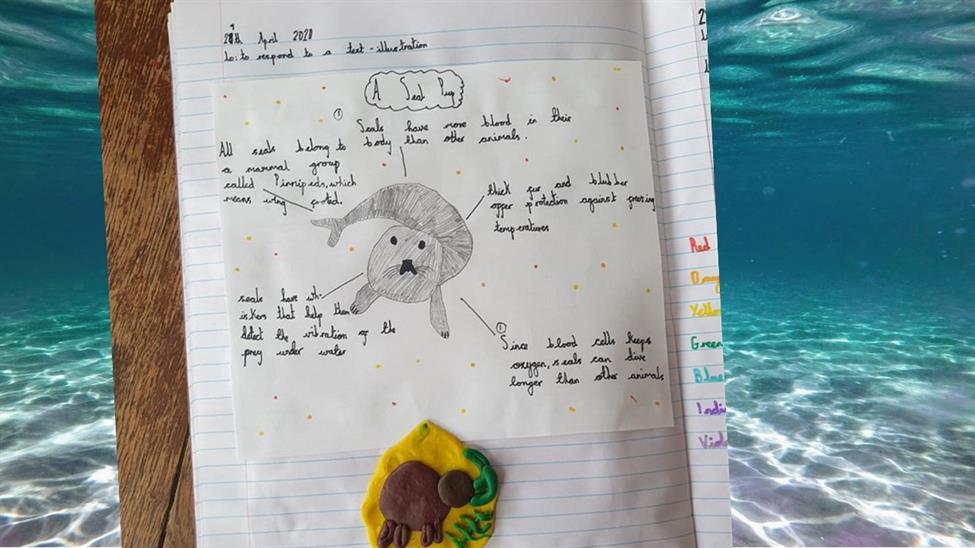 28th April 2020
Lo: to respond to a text - illustration
A Seal Pup
①
Seals have more blood in their
body than other animals.
All seals belong to
a mammal group
called Pinnipeds, which
means wing footed.
thick fur and blubber
offer protection against frezing
temperatures
seals have wh-
iskers that help them
detect the vibration of the
prey under water
①
Since blood cells keeps
oxygen, seals can dive
longer than other animals
Red
Orang
Yellow
Green
Blue
Indi
Viol